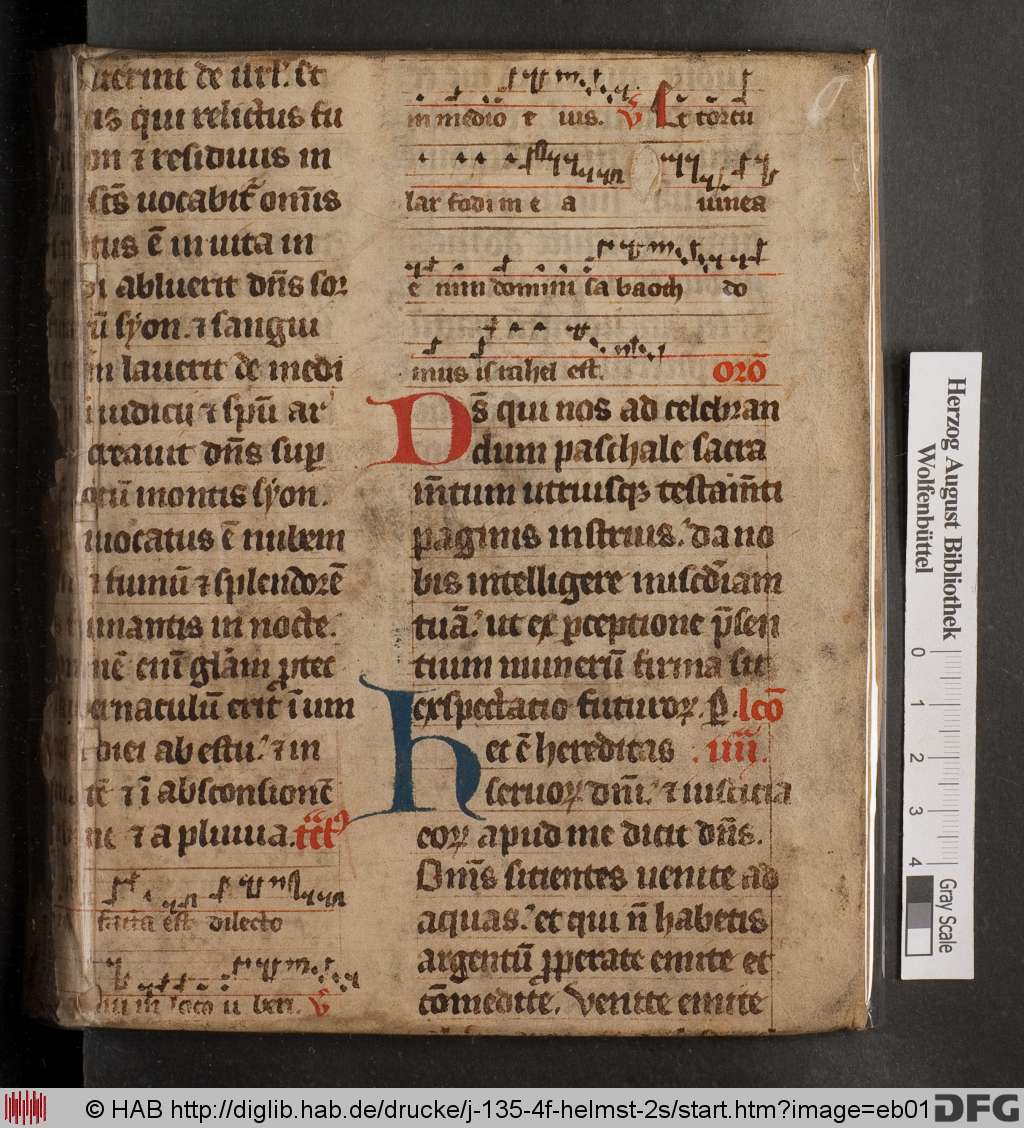 uerint de irł. et
as qui relictus fu
on ⁊ residuus in
scs̄ uocabit᷑ om̄is
tus ē in uita in
di abluerit dn̄s sor
ū syon. ⁊ sangui
lauerit de medi
iudicij ⁊ spū ar
creauit dn̄s suꝑ
montis syon.
inuocatus ē nubem
⁊ fumū ⁊ splendorē
in nocte.
enī gl̄am ꝓtec
bernaculū erit ī um
diei ab estu. ⁊ in
tē ⁊ ī absconsionē
ne ⁊ a pluuia.
facta est dilecto
in loco u beri. v̄
in medio e ius. v̄ Et torcu
lar fodi in e a uinea
e nim domini sa baoth do
mus israhel est. orō
Ds̄ qui nos ad celebran
dum paschale sacra
m̄tum utriusqꝫ testam̄ti
paginis instruis. da no
bis intelligere mis̄cdiam
tuā. ut ex ꝑceptione p̄sen
tium munerū firma sit
exspectatio futuroꝝ. ꝑ. lcō
hec ē hereditas . iiij.
seruoꝝ dn̄i. ⁊ iusticia
eoꝝ apud me dicit dn̄s.
Om̄s sitientes uenite ad
aquas. et qui n̄ habetis
argentū ꝓperate emite et
cōmedite. Venite emite
Herzog August Bibliothek
Wolfenbüttel
0 1 2 3 4
Gray Scale
© HAB http://diglib.hab.de/drucke/j-135-4f-helmst-2s/start.htm?image=eb01
DFG